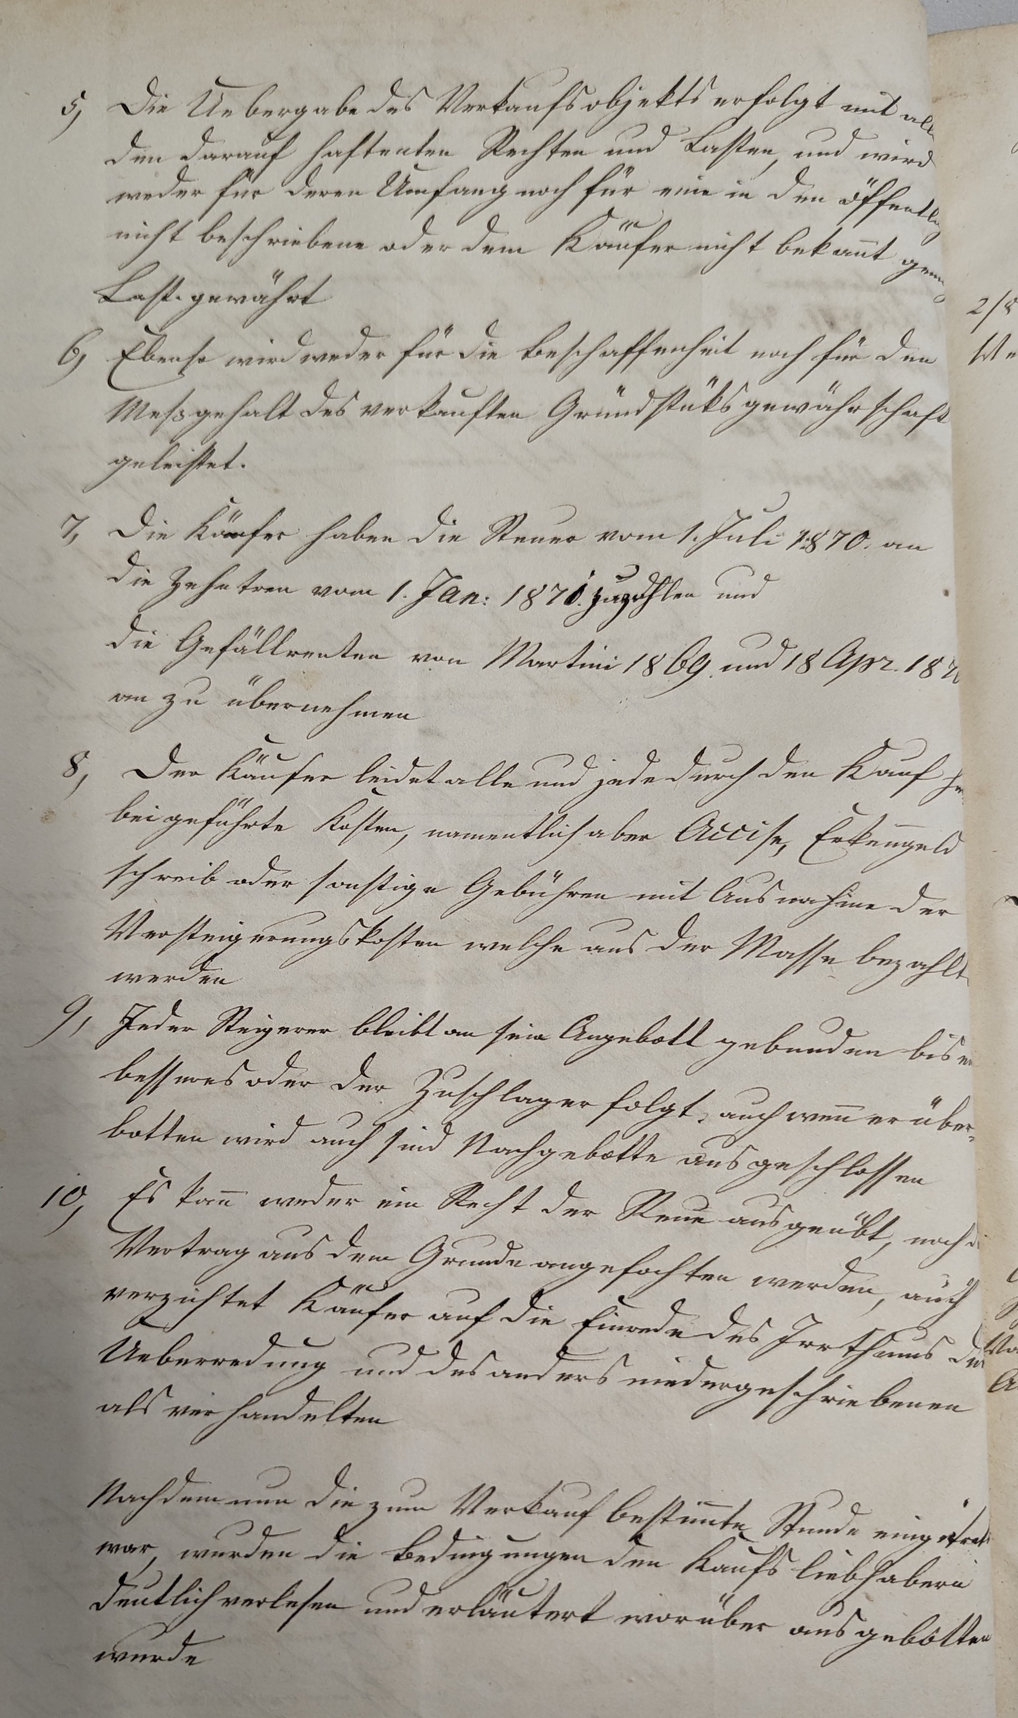 5, Die Uebergabe des Verkaufsobjekts erfolgt mit all
den darauf haftenden Rechten und Lasten, und wird
weder für deren Umfang noch für eine in den öffentli
nicht beschriebene oder dem Käufer nicht bekannt gem
Last gewährt
6, Ebenso wird weder für die Beschaffenheit noch für den
Meßgehalt des verkauften Gründstüks gewährschaft
geleistet.
7, Die Käufer haben die Steuer vom 1. Juli 1870. an
die Zehntren vom 1. Jan: 1870. zu zahlen und
die Gefällrenten von Martini 1869. und 18 Apr. 187
an zu übernehmen
8, Der Käufer leidet alle und jede durch den Kauf her
beigeführte Kosten, namentlich aber Accise, Erkenngeld
schreib oder sonstige Gebühren mit Ausnahme der
Versteigerungskosten welche aus der Masse bezahlt
werden
9, Jeder Steigerer bleibt an sein Angebott gebunden bis ein
besseres oder der Zuschlag erfolgt, auch wenn er über-
botten wird auch sind Nachgebotte ausgeschlossen
10, Es kann weder ein Recht der Reue ausgeübt, noch d
Vertrag aus dem Grunde angefochten werden, auch
verzichtet Käufer auf die Einrede des Irrthums der
Ueberredung und des anders niedergeschriebenen
als verhandelten
Nachdem nun die zum Verkauf bestimmte Stunde eingetret
war, wurden die Bedingungen den Kaufsliebhabern
deutlich verlesen und erläutert worüber ausgebotten
wurde